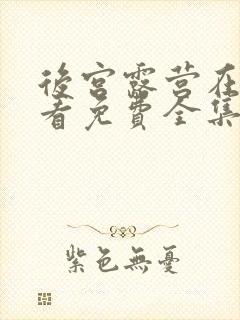 後宮露营在
看免費全集
紫色無憂